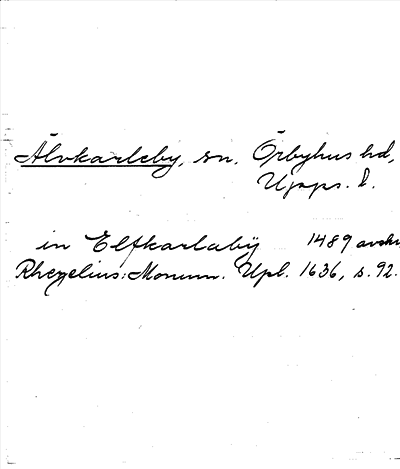 Älvkarleby, sn. Örbyhus hd,
Upps. l.
in Elfkarlaby 1489 avskr.
Rhezelius: Monum. Upl. 1636, s. 92.